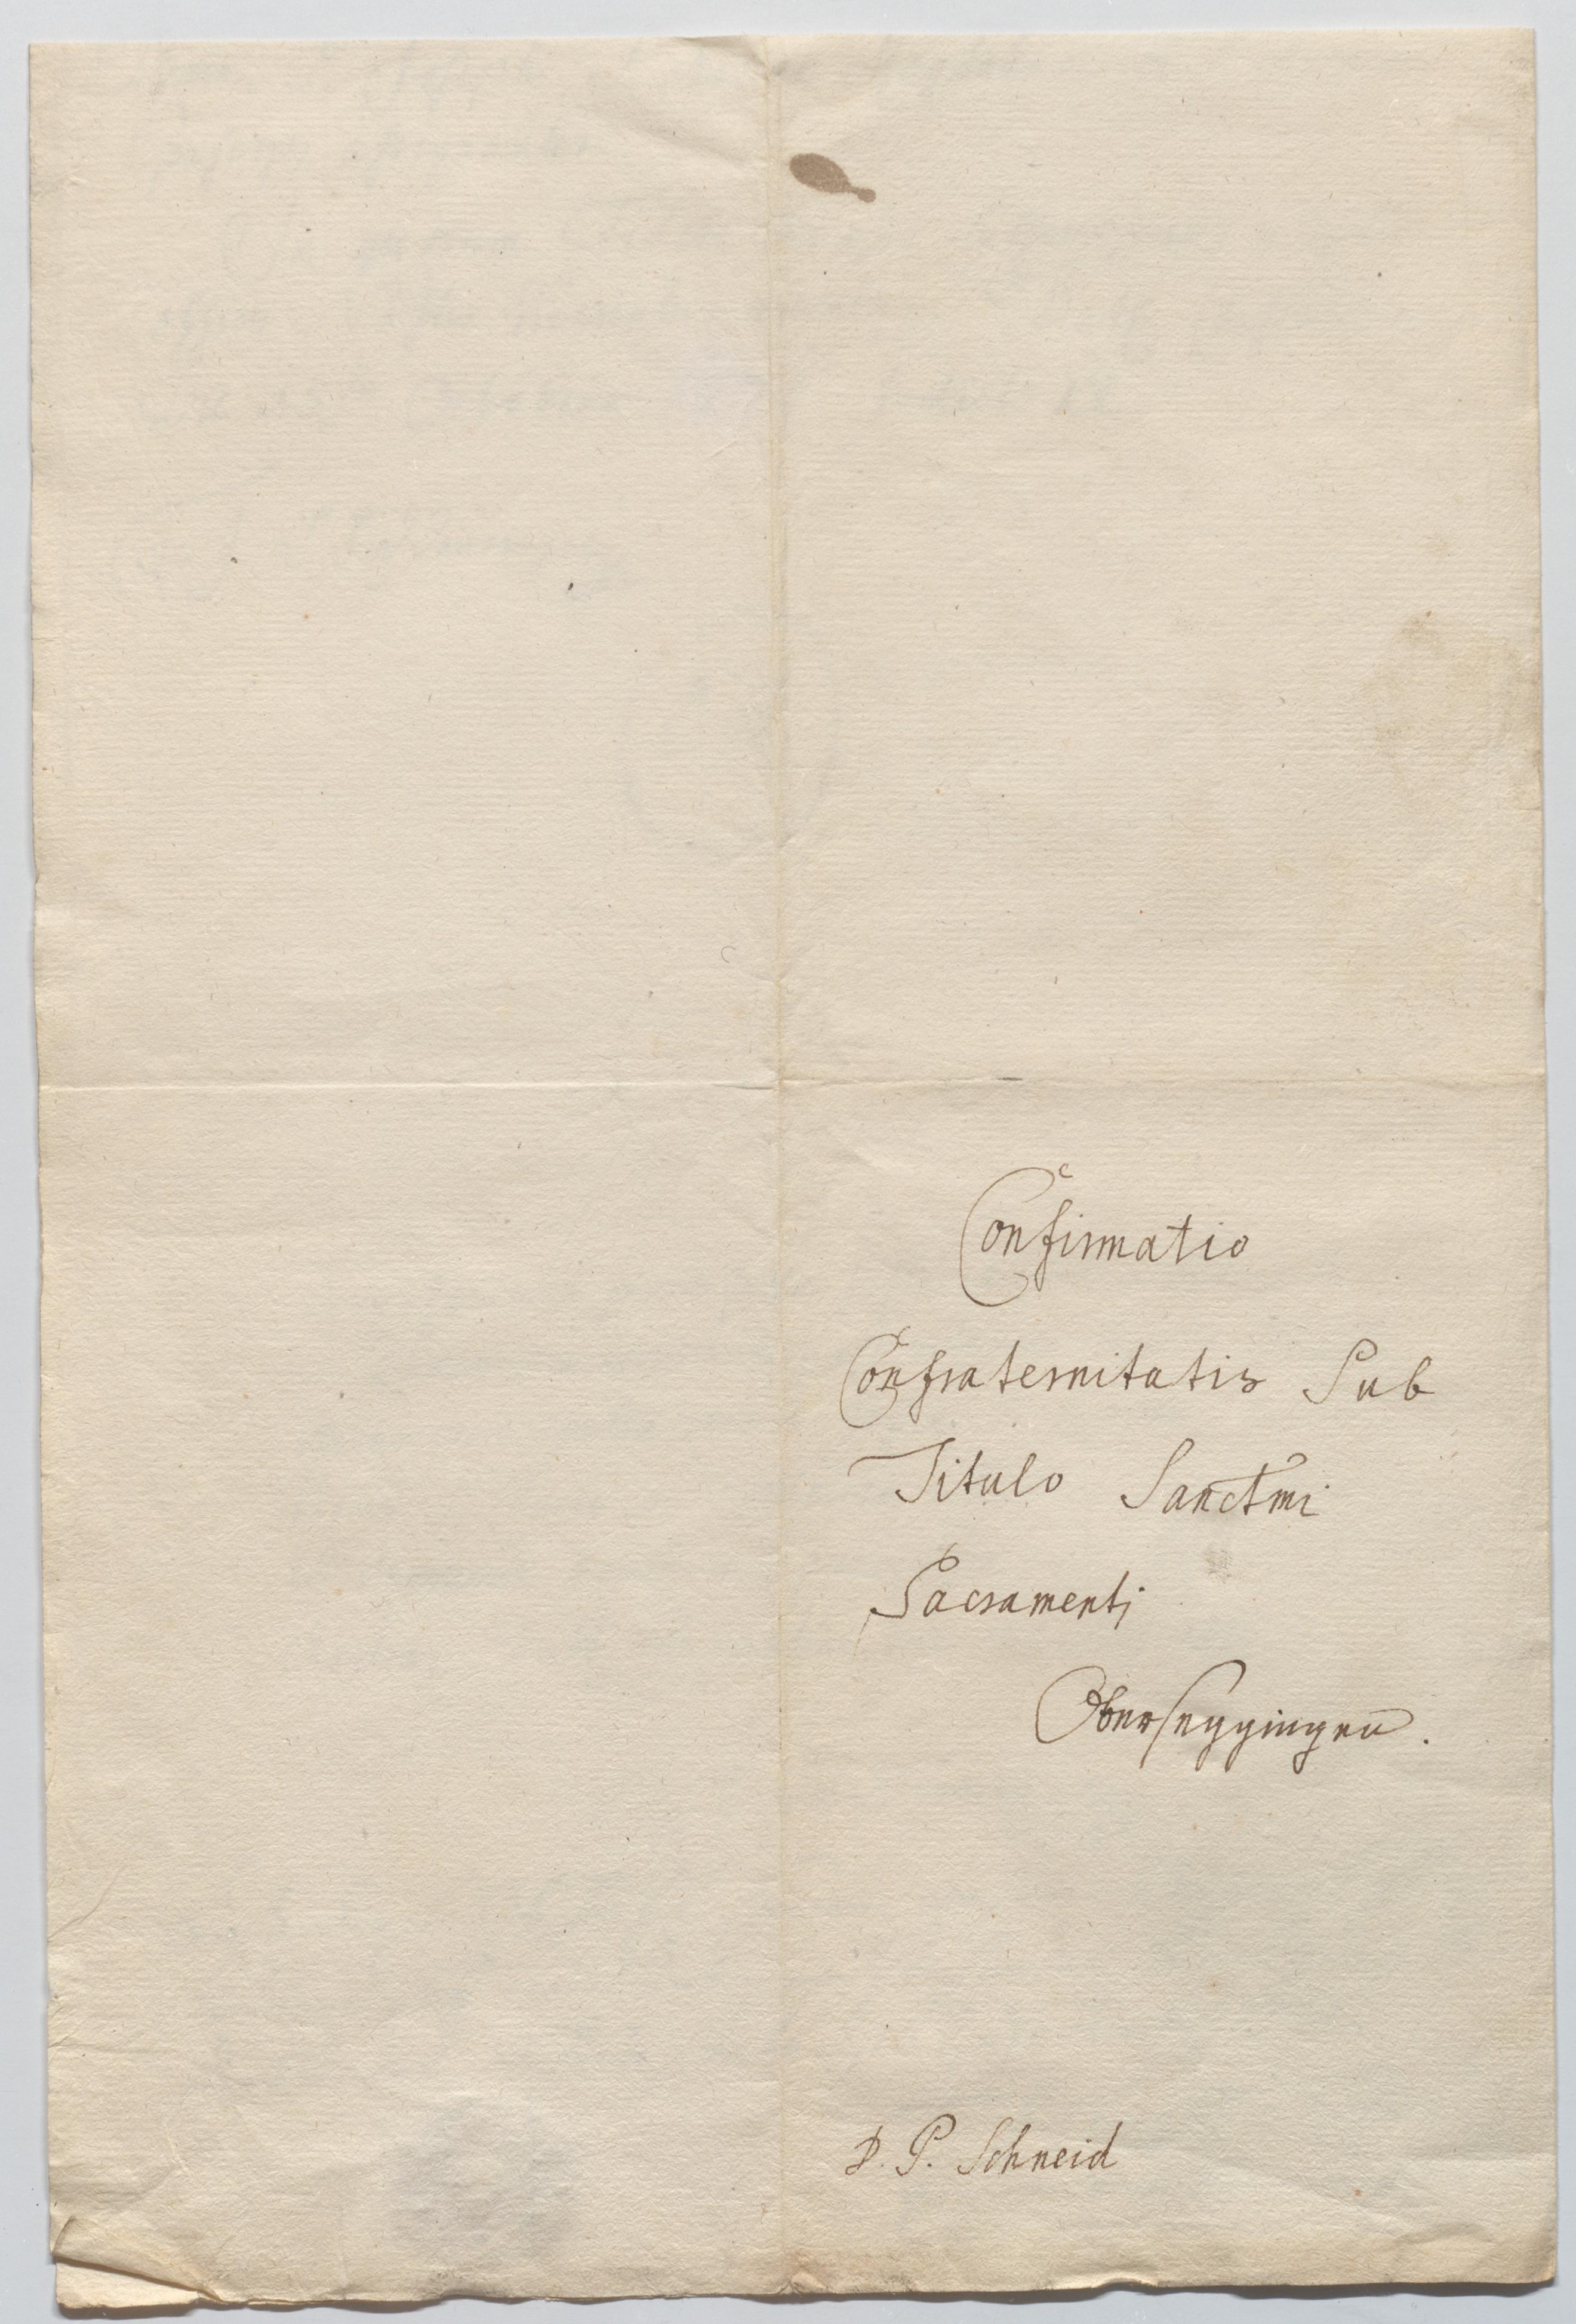 Confirmatio
Confraternitatis Sub
Titulo Sanctmi
Sacramenti
Oberseggingen.
P. P. Schneid